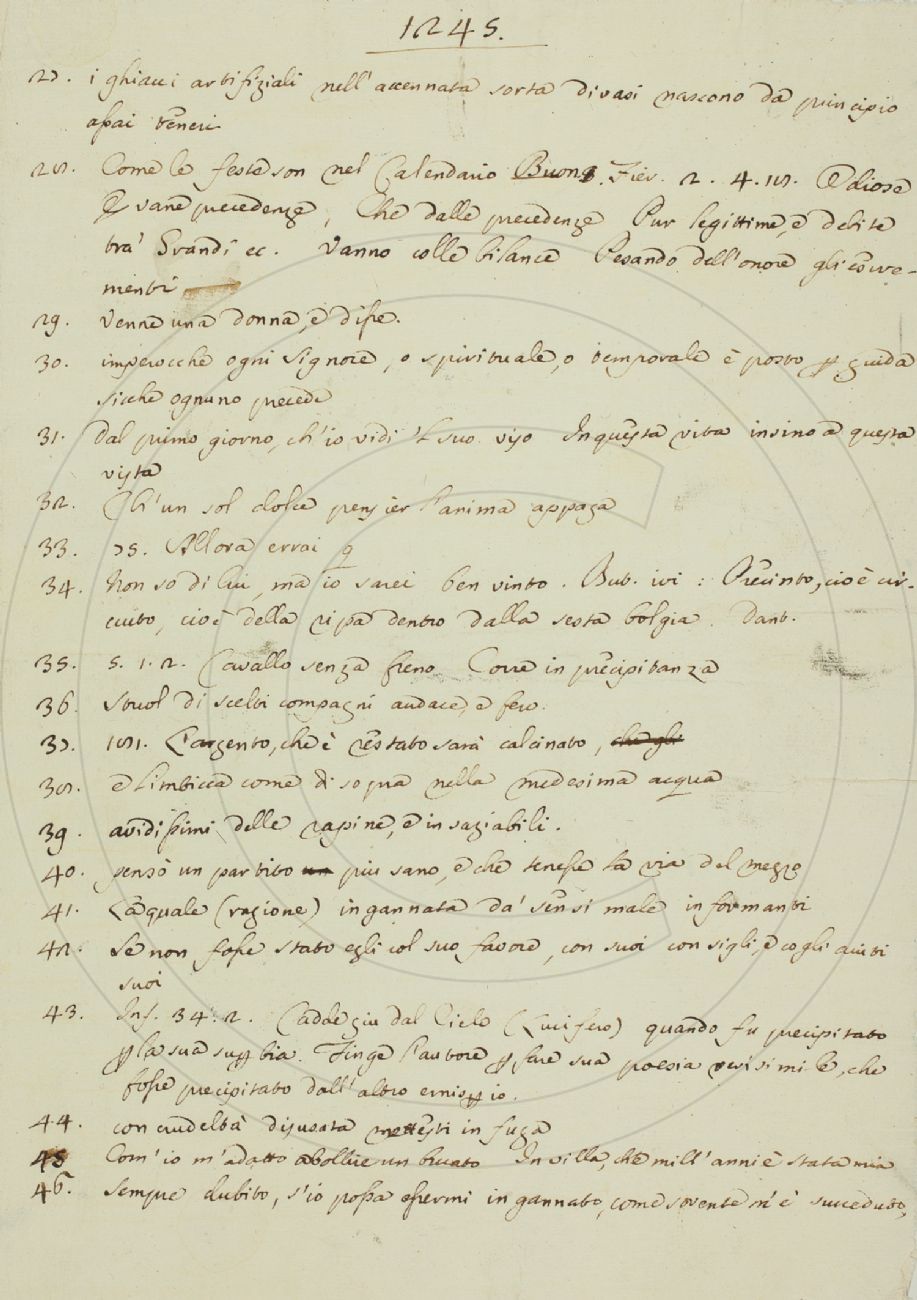 1245.
27. i ghiacci artifiziali nell' accennata sorta di vasi nascono da principio
assai teneri
28. Come le feste son nel Calendario Buon. Fier. 2. 4. 18. Odiose
E vane precedenze, Che dalle precedenze Pur legittime, e debite
tra' Grandi ec. Vanno colle bilance Pesando dell'onore gli
menti
29. Venne una donna, e disse.
30. imperocchè ogni Signore, o spirituale, o temporale è posto p guida
sicchè ognuno precede
31. dal primo giorno, ch'io vidi 'l suo viso In questa vita insino a questa
vista
32. Ch'un sol dolce pensier l'anima appaga
33. 75. Allora errai
34. Non so di lui, ma io sarei ben vinto. But. ivi: Precinto, cioè cir-
cuito, cioè della ripa dentro dalla sesta bolgia. Dant.
35. 5. 1. 2. Cavallo senza freno Corre in precipitanza
36. stuol di scelti compagni audace, e fero.
37. 181. L'argento, che è restato sarà calcinato, che gli
38. e limbicca come di sopra nella medesima acqua
39. avidissimi delle rapine, e insaziabili.
40. pensò un partito un più sano, e che tenesse la via del mezzo
41. La quale (ragione) ingannata da' sensi male informanti
42. Se non fosse stato egli col suo favore, con suoi consigli, e cogli aiuti
suoi
43. Inf. 34. 2. Cadde giu dal Cielo (Lucifero) quando fu precipitato
p la sua supbia. Finge l'autore p fare sua poesia verisimile, che
fosse precipitato dall'altro emisp io.
44. con crudeltà disusata mettesti in fuga
45 Com' io m'adatto a bollire un bucato In villa, che mill'anni è stata mia
46. Sempre dubito, s'io possa essermi ingannato, come sovente m'è succeduto,